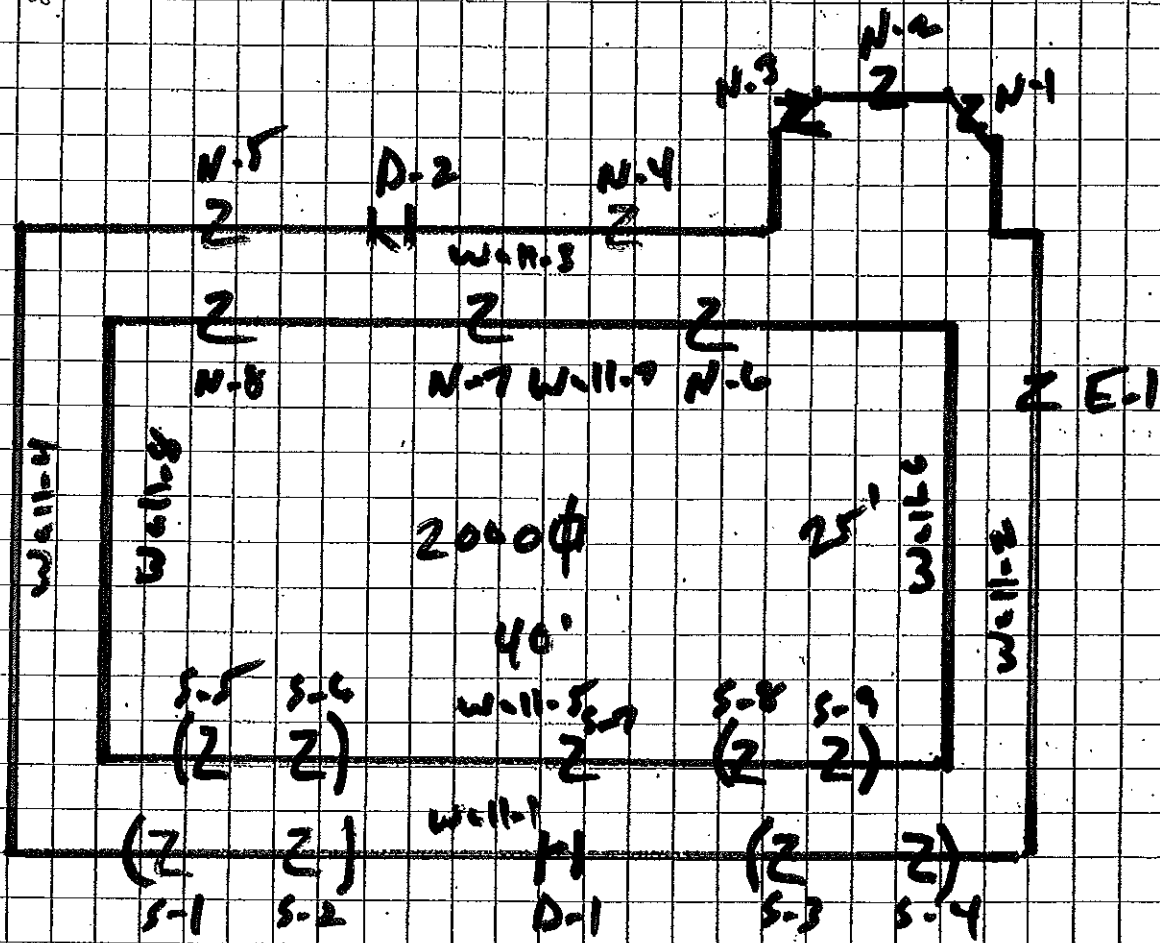 N-2
N-3
N-1
N-5
D-2
N-4
Wall-3
N-8
N-7
Wall-7
N-6
E-1
Wall-4
Wall-8
2000ϕ
25'
Wall-6
Wall-2
40'
S-5
S-6
Wall-5
S-7
S-8
S-9
Wall-1
S-1
S-2
D-1
S-3
S-4